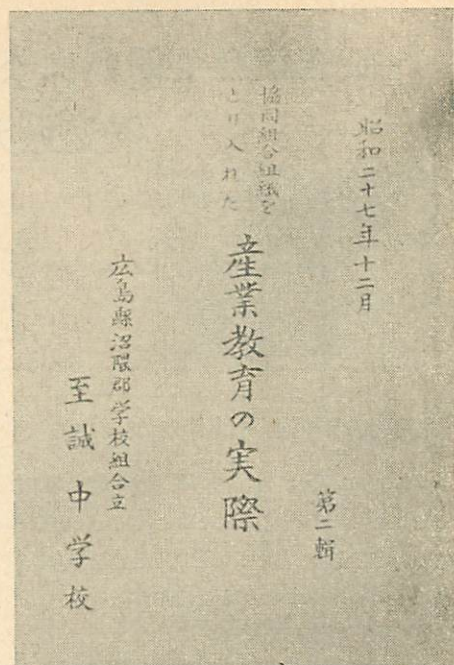 昭和二十七年十二月
第二輯
協同組合組織を
とり入れた
産業教育の実際
広島縣沼隈郡学校組合立
至誠中学校